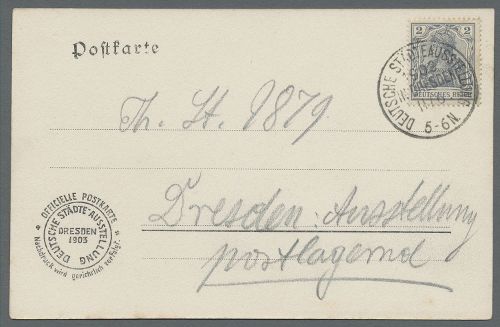 Postkarte
2 2
DEUTSCHES REICH
DEUTSCHE STÄDTEAUSSTELLUNG
DRESDEN
5-6N.
Th. St. 1879
Dresden: Ausstellung
postlagernd
* OFFICIELLE POSTKARTE *
DEUTSCHE STÄDTE AUSSTELLUNG
DRESDEN
1903
Nachdruck wird gerichtlich verfolgt.